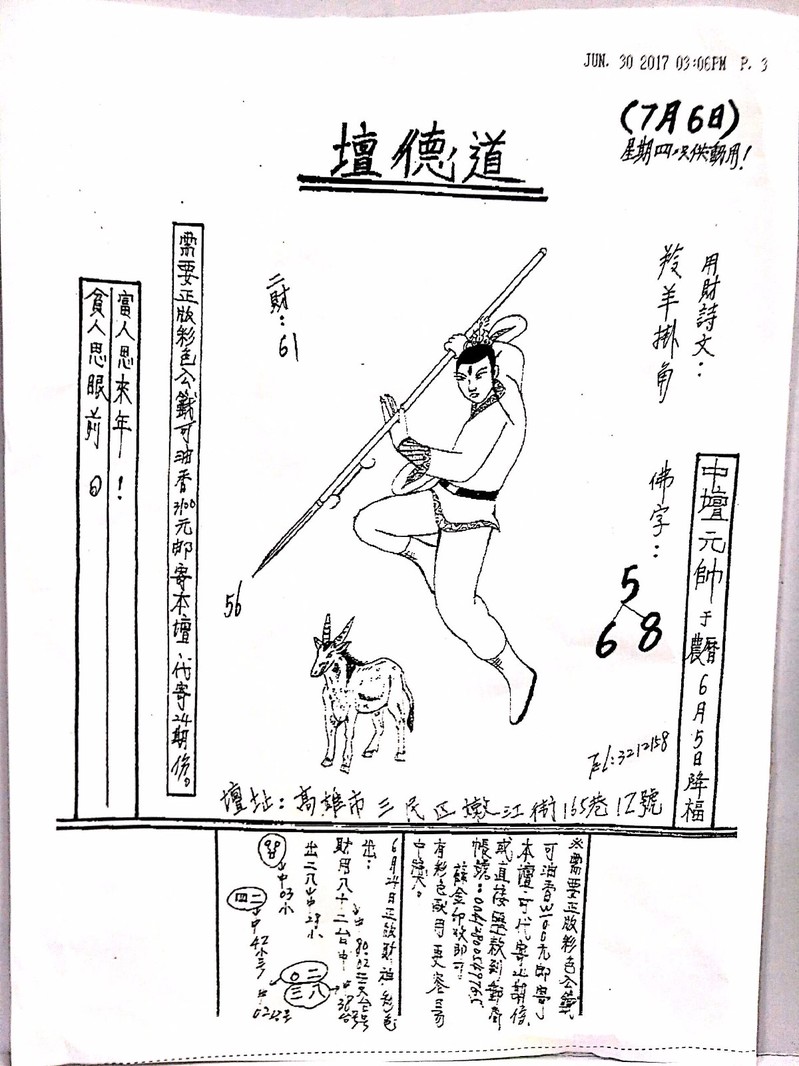 JUN. 30 2017 03:06PM P. 3
(7月6日)
星期四只供動用!
壇德道
用財詩文:
羚羊掛角
佛字:
5
6 8
中壇元帥于農曆6月5日降福
二財:61
需要正版彩色公籤可油香3100元邮寄本壇、代寄24期份。
富人思來年!
貧人思眼前。
56
Tel:3212158
壇址:高雄市三民區墩江街165巷12號
※需要正版彩色公籤
可油香3100元邮寄
本壇、可代寄24期份
帳號:
有彩色取用更容易
中獎。
6月24日正版財祖彩色
出:
財用八十二台中
出二八出中28小
98
中03小
四二
中42小
二〇
三八